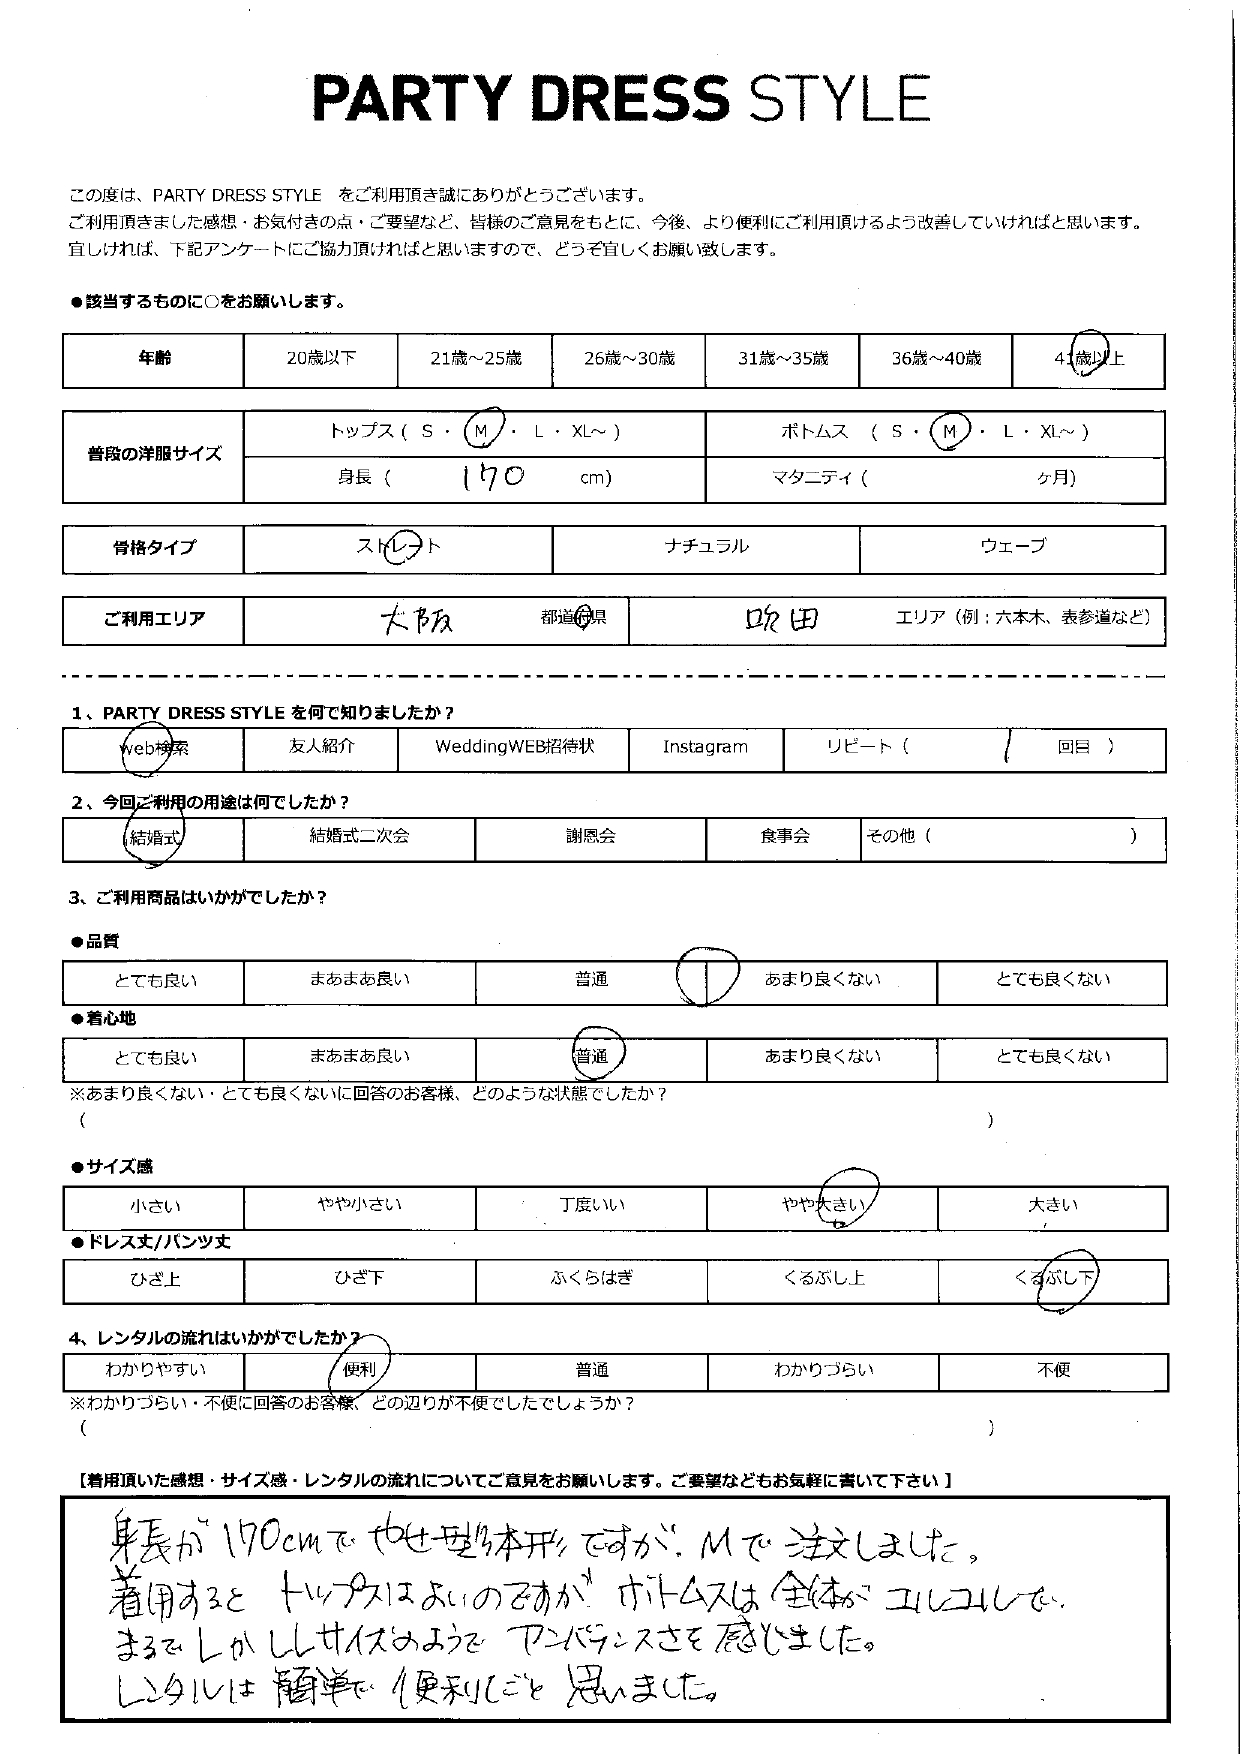 PARTY DRESS STYLE
この度は、PARTY DRESS STYLE をご利用頂き誠にありがとうございます。
ご利用頂きました感想・お気付きの点・ご要望など、皆様のご意見をもとに、今後、より便利にご利用頂けるよう改善していければと思います。
宜しければ、下記アンケートにご協力頂ければと思いますので、どうぞ宜しくお願い致します。
●該当するものに○をお願いします。
年齢 20歳以下 21歳～25歳 26歳～30歳 31歳～35歳 36歳～40歳 41歳以上
普段の洋服サイズ トップス ( S ・ M ・ L ・ XL～ ) ボトムス ( S ・ M ・ L ・ XL～ )
身長 ( 170 cm) マタニティ ( ヶ月)
骨格タイプ ストレート ナチュラル ウェーブ
ご利用エリア 大阪 都道府県 吹田 エリア（例：六本木、表参道など）
1、PARTY DRESS STYLE を何で知りましたか？
web検索 友人紹介 WeddingWEB招待状 Instagram リピート ( 1 回目 )
2、今回ご利用の用途は何でしたか？
結婚式 結婚式二次会 謝恩会 食事会 その他 ( )
3、ご利用商品はいかがでしたか？
●品質
とても良い まあまあ良い 普通 あまり良くない とても良くない
●着心地
とても良い まあまあ良い 普通 あまり良くない とても良くない
※あまり良くない・とても良くないに回答のお客様、どのような状態でしたか？
( )
●サイズ感
小さい やや小さい 丁度いい やや大きい 大きい
●ドレス丈/パンツ丈
ひざ上 ひざ下 ふくらはぎ くるぶし上 くるぶし下
4、レンタルの流れはいかがでしたか？
わかりやすい 便利 普通 わかりづらい 不便
※わかりづらい・不便に回答のお客様、どの辺りが不便でしたでしょうか？
( )
【着用頂いた感想・サイズ感・レンタルの流れについてご意見をお願いします。ご要望などもお気軽に書いて下さい】
身長が170cmで やせ型体形ですが、Mで注文しました。
着用すると トップスはよいのですが ボトムスは 全体が
まるで LかLLサイズのようで アンバランスさを 感じました。
レンタルは 簡単で 便利だと 思いました。